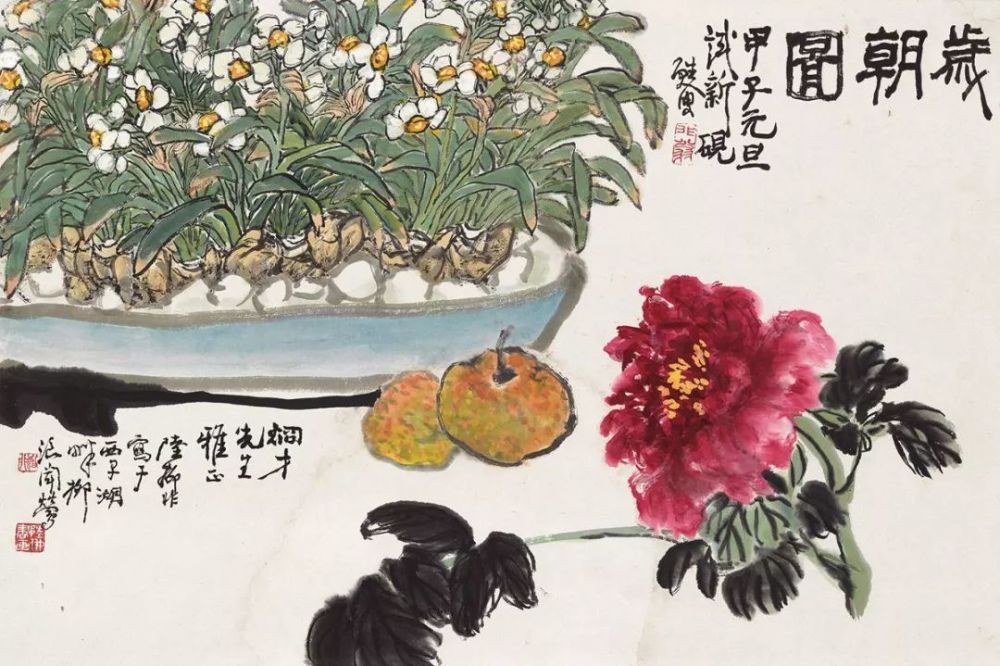 歲朝圖
甲子元旦
試新硯
烱才
先生
雅正
陸抑非
寫于
西子湖
畔柳
浪聞鶯